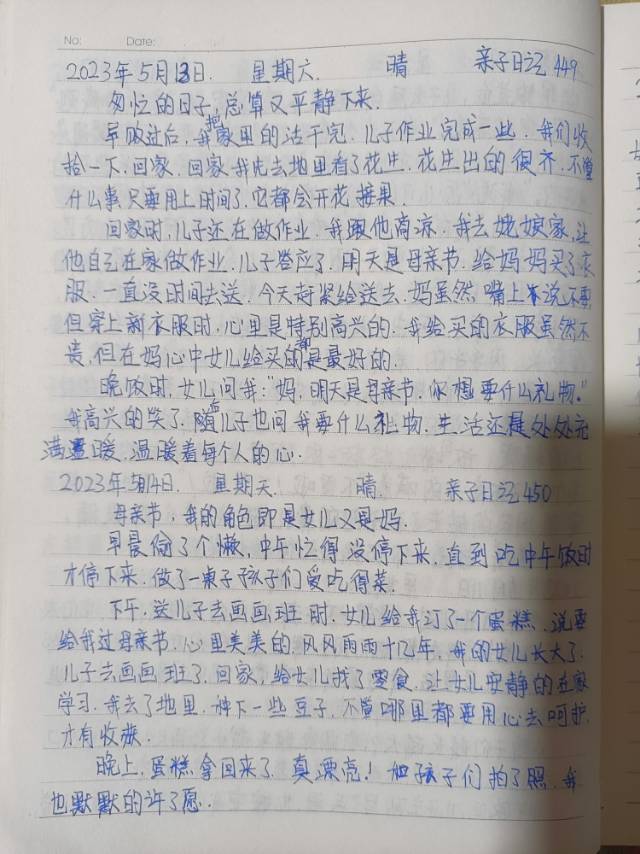 No:    Date:
2023年5月13日. 星期六. 晴 亲子日记449
匆忙的日子,总算又平静下来.
早饭过后,我把家里的活干完.儿子作业完成一些.我们收
拾一下.回家.回家我先去地里看了花生.花生出的很齐.不管
什么事只要用上时间了.它都会开花接果.
回家时,儿子还在做作业.我跟他商凉.我去姥娘家,让
他自己在家做作业.儿子答应了.明天是母亲节.给妈妈买了衣
服.一直没时间去送.今天赶紧给送去.妈虽然嘴上说不要
但穿上新衣服时.心里是特别高兴的.我给买的衣服虽然不
贵,但在妈心中女儿给买的都是最好的.
晚饭时,女儿问我:"妈,明天是母亲节.你想要什么礼物."
我高兴的笑了.随后儿子也问我要什么礼物.生活还是处处充
满温暖.温暖着每个人的心.
2023年5月14日. 星期天. 晴. 亲子日记450
母亲节,我的角色即是女儿又是妈.
早晨偷了个懒,中午忙得没停下来,直到吃中午饭时
才停下来.做了一桌子孩子们爱吃得菜.
下午,送儿子去画画班时.女儿给我订了一个蛋糕.说要
给我过母亲节.心里美美的.风风雨雨十几年,我的女儿长大了.
儿子去画画班了.回家,给女儿找了零食.让女儿安静的在家
学习.我去了地里.种下一些豆子.不管哪里都要用心去呵护.
才有收获.
晚上,蛋糕拿回来了.真漂亮!把孩子们拍了照.我
也默默的许了愿.